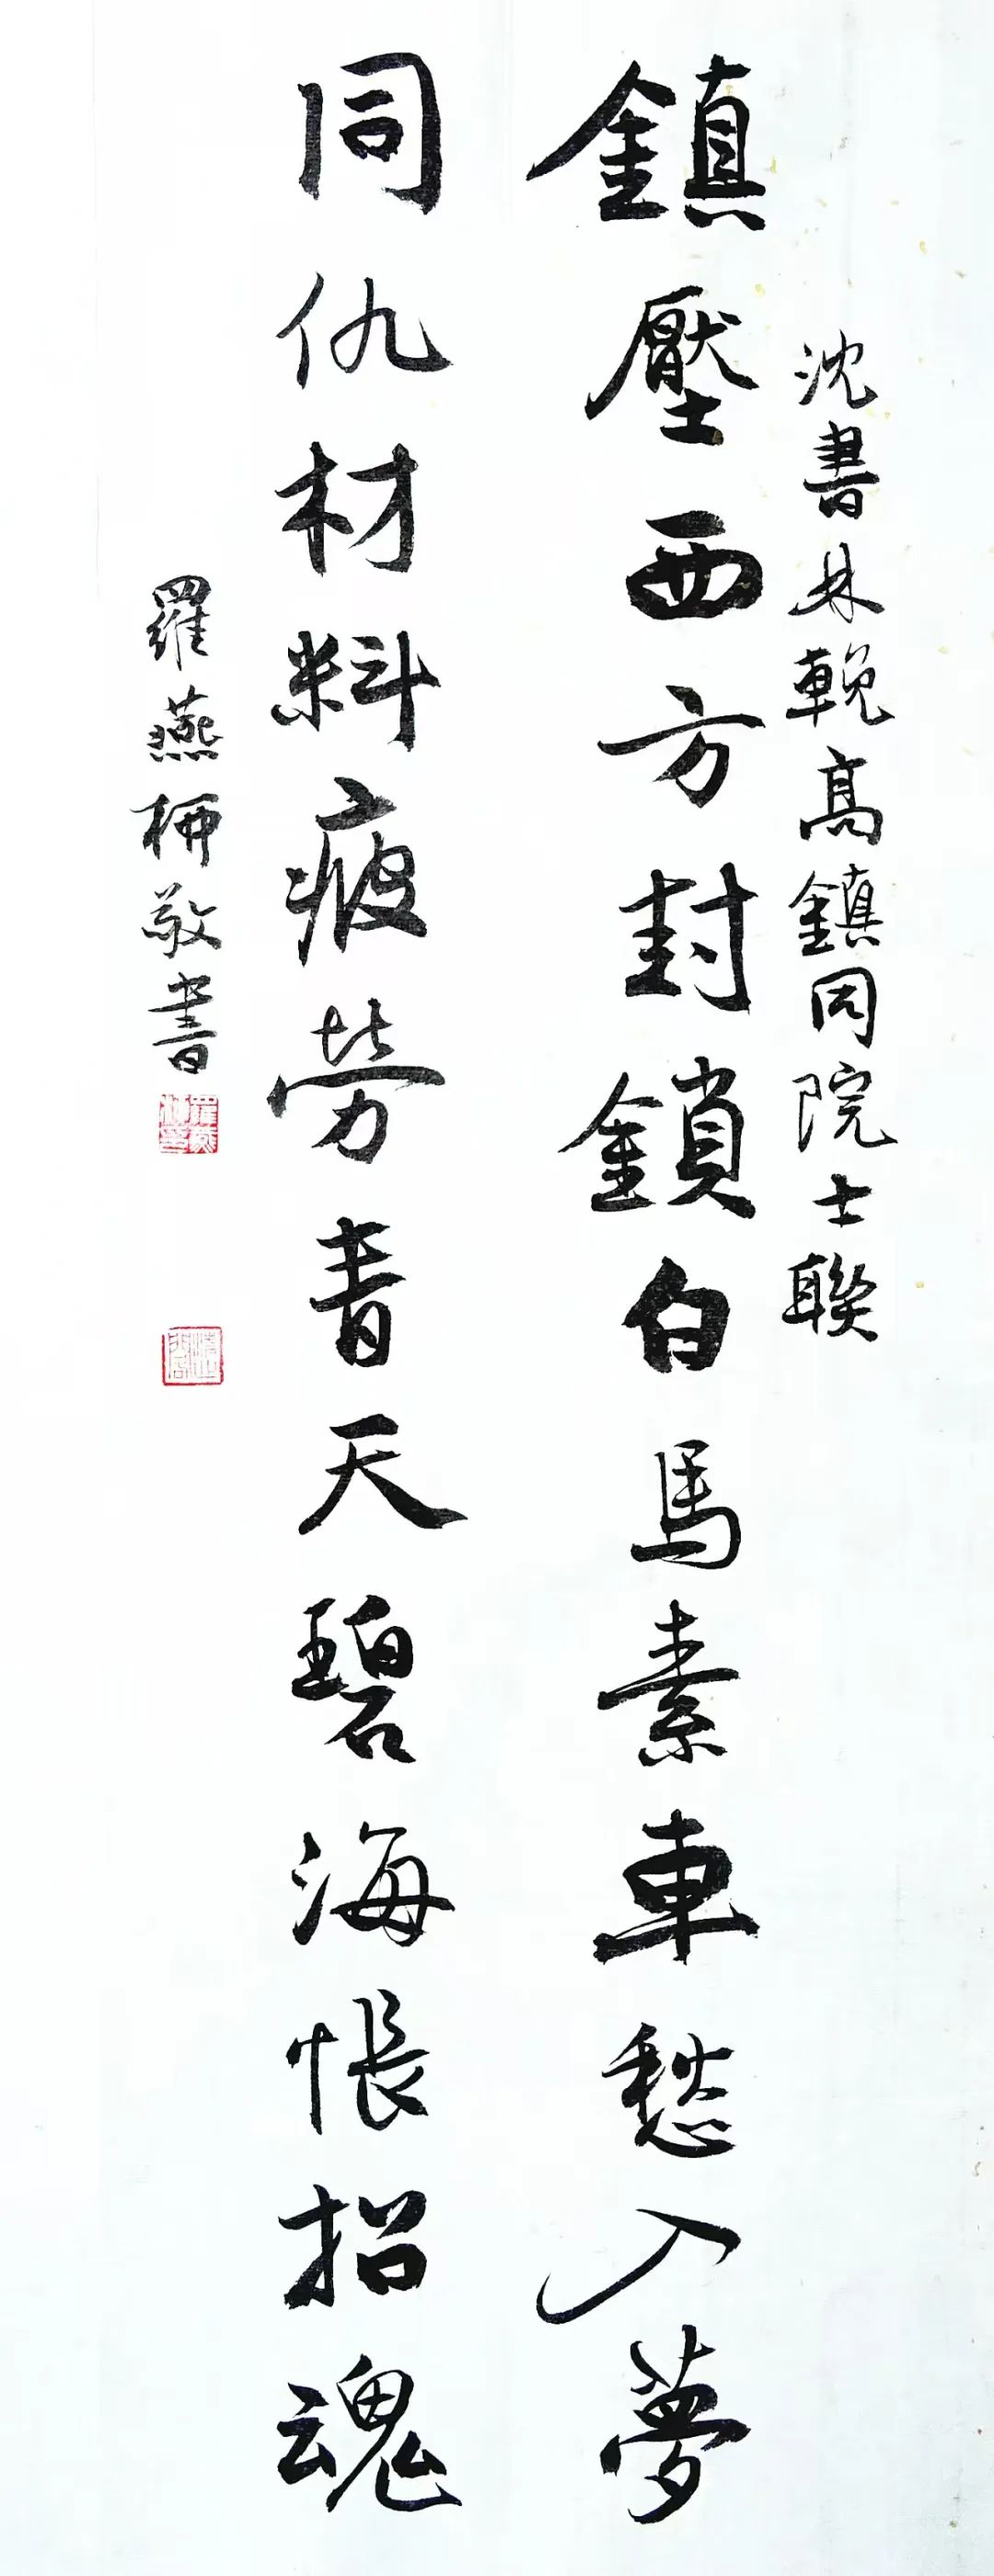 沈書林輓高鎮同院士聯
鎮壓西方封鎖白馬素車愁入夢
同仇材料疲勞青天碧海悵招魂
羅燕敬書